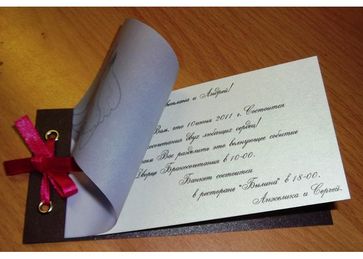 и Андрей!
Вам, что 10 июня 2011 г. Состоится
двух любящих сердец!
Вас разделить это волнующее событие
Бракосочетания в 10-00.
Банкет состоится
в ресторане "Былина" в 18-00.
Анжелика и Сергей.